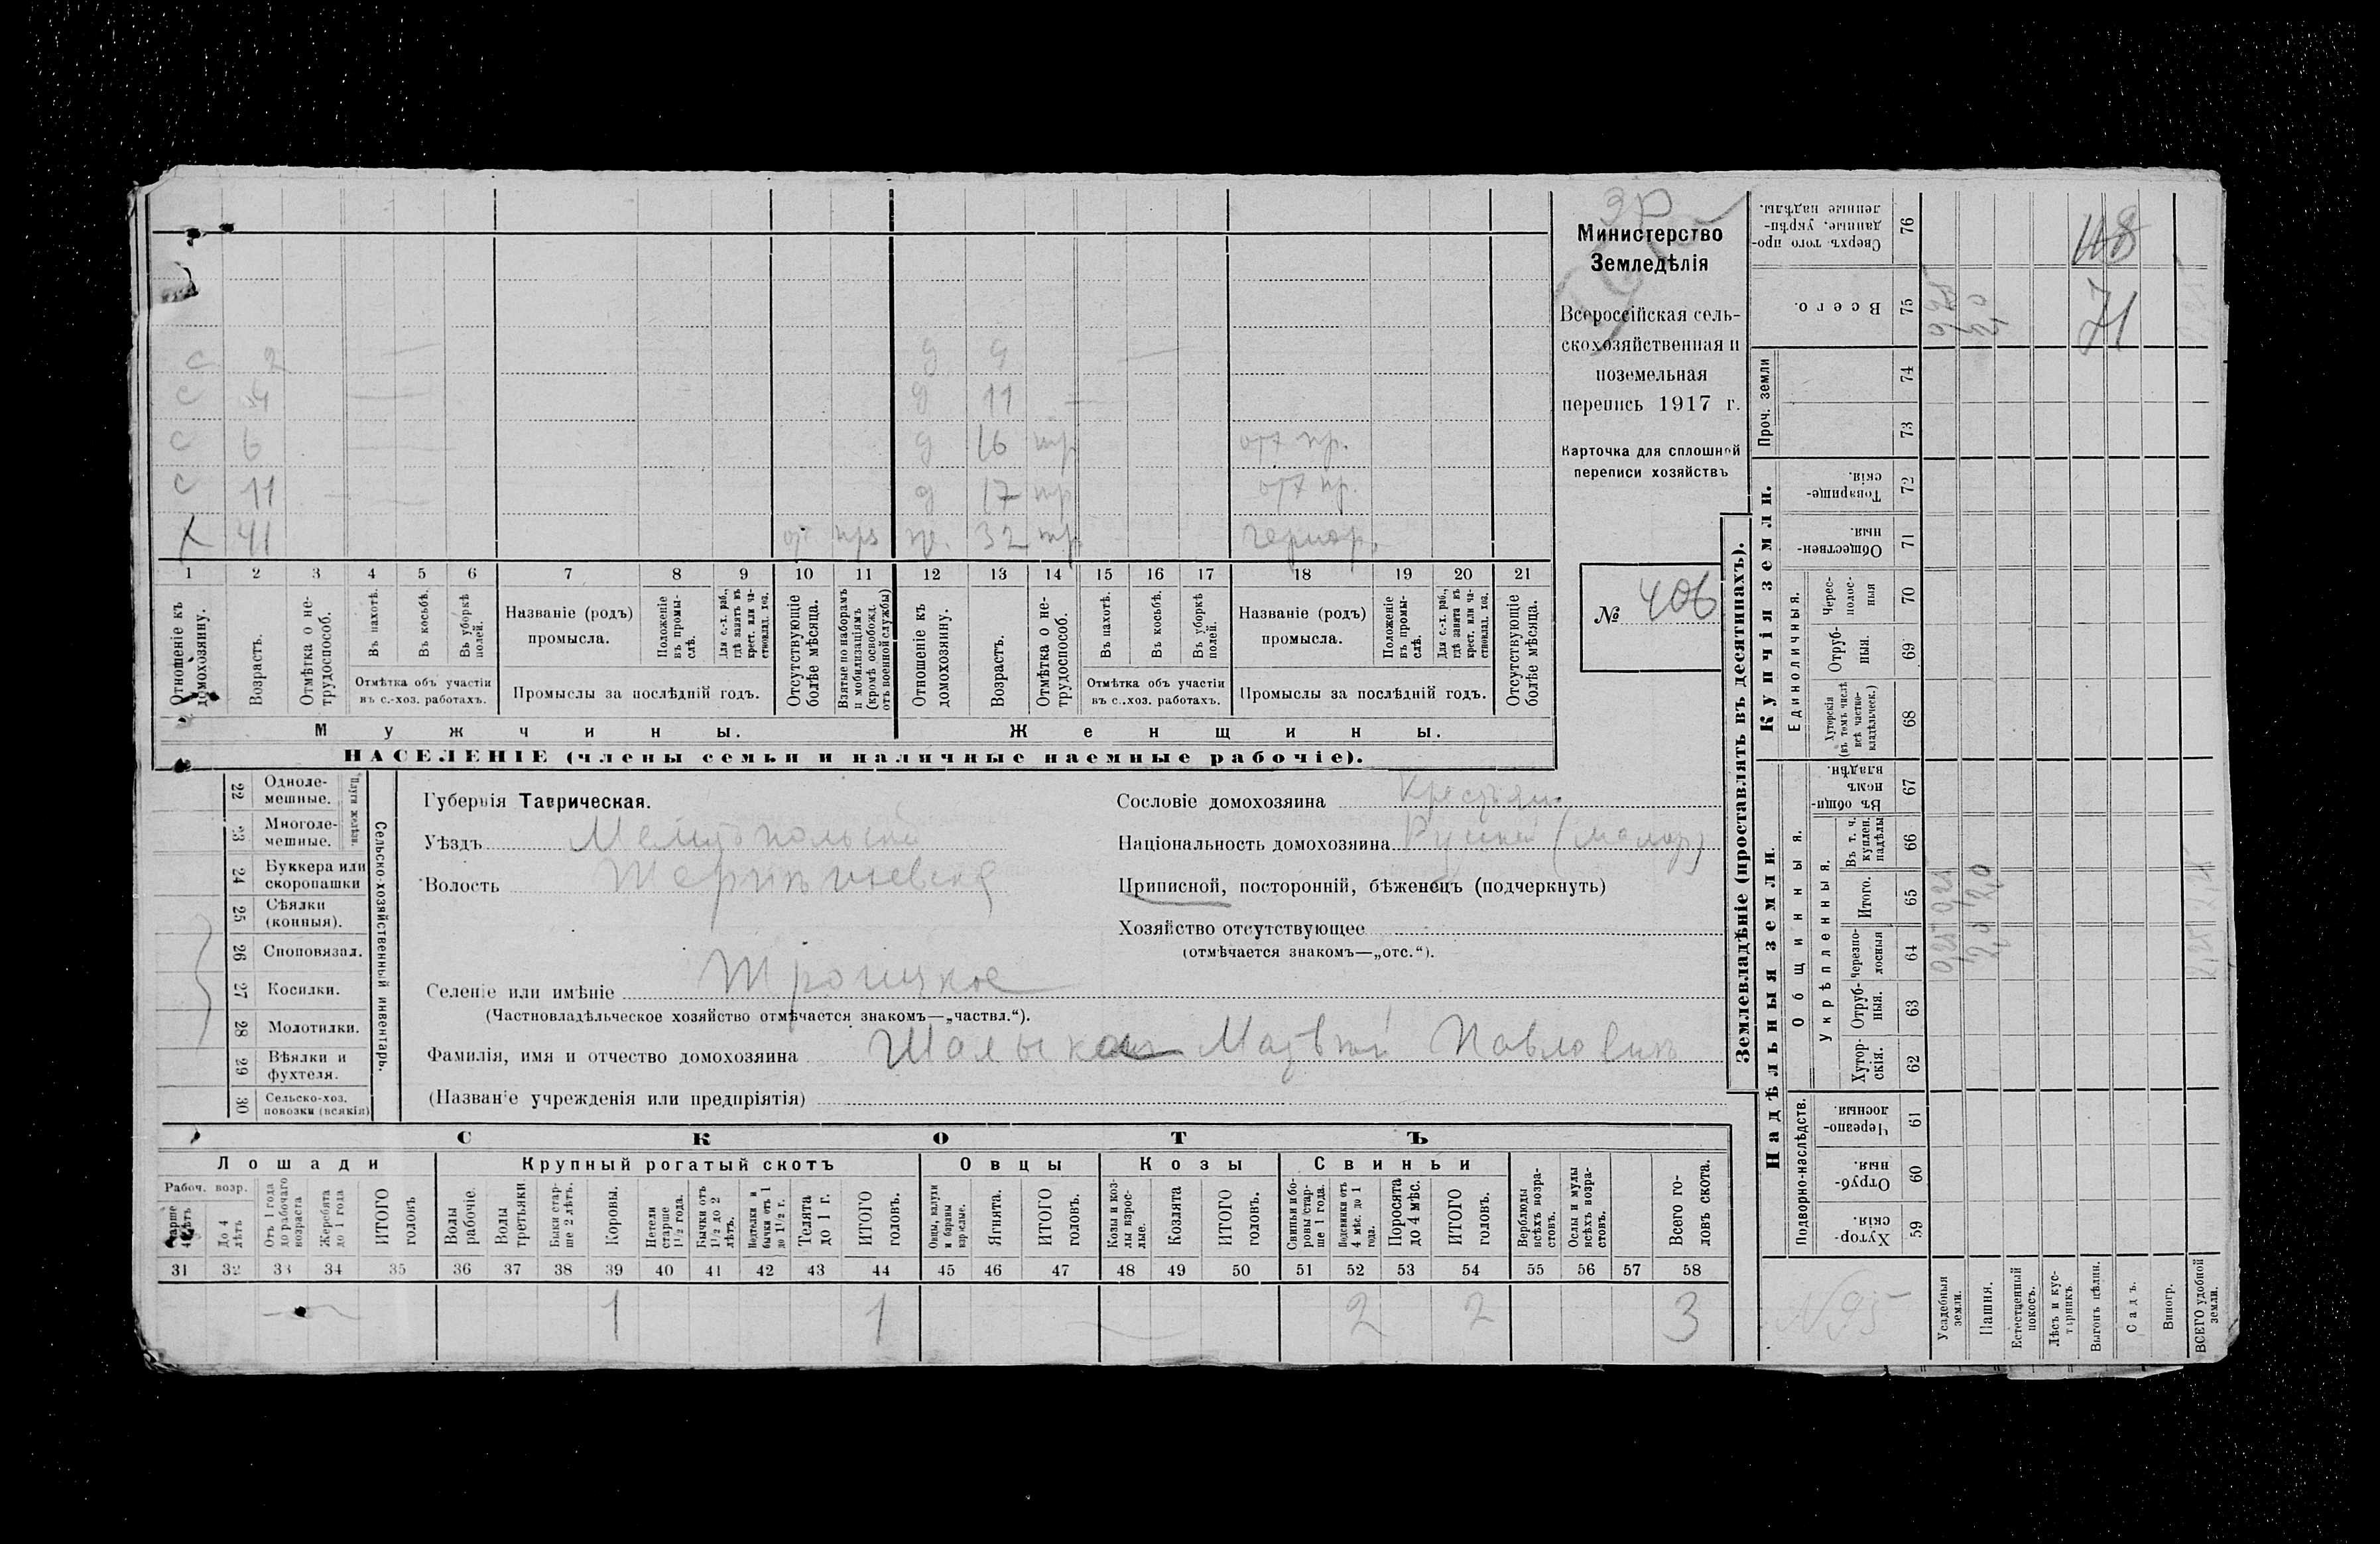 Министерство
Земледѣлія
Всероссійская сель-
скохозяйственная и
поземельная
перепись 1917 г.
Карточка для сплошной
переписи хозяйствъ
№ 406
с 2 — д 9 —
с 4 — д 11 —
с 6 — д 16 пр.
с 11 — д 17 пр.
х 41 ж. 32
1 2 3 4 5 6 7 8 9 10 11 12 13 14 15 16 17 18 19 20 21
Отношеніе къ домохозяину.
Возрастъ.
Отмѣтка о не-трудоспособ.
Въ пахотѣ.
Въ косьбѣ.
Въ уборкѣ полей.
Отмѣтка объ участіи
въ с.-хоз. работахъ.
Названіе (родъ)
промысла.
Положеніе въ промы-слѣ.
Для с.-х. раб., гдѣ занятъ въ крест. или ча-стновлад. хоз.
Промыслы за послѣдній годъ.
Отсутствующіе болѣе мѣсяца.
Взятые по наборамъ и мобилизаціямъ (кромѣ освобожд. отъ военной службы)
Отношеніе къ домохозяину.
Возрастъ.
Отмѣтка о не-трудоспособ.
Въ пахотѣ.
Въ косьбѣ.
Въ уборкѣ полей.
Отмѣтка объ участіи
въ с..хоз. работахъ.
Названіе (родъ)
промысла.
Положеніе въ промы-слѣ.
Для с.-х. раб., гдѣ занята въ крест. или ча-стновлад. хоз.
Промыслы за послѣдній годъ.
Отсутствующіе болѣе мѣсяца.
Мужчины. Женщины.
НАСЕЛЕНІЕ (члены семьи и наличные наемные рабочіе).
Сельско-хозяйственный инвентарь.
Плуги желѣзн.
22 Одноле-мешные.
23 Многоле-мешные.
24 Буккера или скоропашки
25 Сѣялки (конныя).
26 Сноповязал.
27 Косилки.
28 Молотилки.
29 Вѣялки и фухтеля.
30 Сельско-хоз. повозки (всякія)
Губернія Таврическая.
Уѣздъ Мелитопольскій
Волость
Селеніе или имѣніе Троицкое
(Частновладѣльческое хозяйство отмѣчается знакомъ—„частвл.“).
Фамилія, имя и отчество домохозяина Матвѣй Павловичъ
(Названіе учрежденія или предпріятія)
Сословіе домохозяина Крестьян.
Національность домохозяина Русскій (малор)
Приписной, посторонній, бѣженецъ (подчеркнуть)
Хозяйство отсутствующее
(отмѣчается знакомъ—„отс.“).
СКОТЪ
Лошади Крупный рогатый скотъ Овцы Козы Свиньи
Рабоч. возр.
Старше 4 лѣтъ
До 4 лѣтъ
Отъ 1 года до рабочаго возраста
Жеребята до 1 года
ИТОГО головъ
Волы рабочіе.
Волы третьяки
Быки стар-ше 2 лѣтъ.
Коровы.
Нетели старше 1½ года.
Бычки отъ 1½ до 2 лѣтъ.
Нетелки и бычки отъ 1 до 1½ г.
Телята до 1 г.
ИТОГО головъ.
Овцы, валухи и бараны взрослые.
Ягнята.
ИТОГО головъ.
Козы и коз-лы взрос-лые.
Козлята
ИТОГО головъ.
Свиньи и бо-ровы стар-ше 1 года.
Подсвинки отъ 4 мѣс. до 1 года.
Поросята до 4 мѣс.
ИТОГО головъ.
Верблюды всѣхъ возра-стовъ.
Ослы и мулы всѣхъ возра-стовъ.
Всего го-ловъ скота.
31 32 33 34 35 36 37 38 39 40 41 42 43 44 45 46 47 48 49 50 51 52 53 54 55 56 57 58
— 1 1 2 2 3
Землевладѣніе (проставлять въ десятинахъ).
Надѣльныя земли.
Купчія земли.
Проч. земли
Подворно-наслѣдств.
Общинныя.
Укрѣпленныя.
Единоличныя.
Хутор-скія. 59
Отруб-ныя. 60
Черезпо-лосныя. 61
Хутор-скія. 62
Отруб-ныя. 63
Черезпо-лосныя 64
Итого. 65
Въ т. ч. куплен. надѣлы 66
Въ общин-номъ владѣн. 67
Хуторскія (въ томъ числѣ всѣ частно-владѣльческ.) 68
Отруб-ныя. 69
Черес-полос-ныя 70
Обществен-ныя. 71
Товарище-скія. 72
73
74
Всего. 75
Сверхъ того про-данные, укрѣп-ленные надѣлы. 76
Усадебныя земли.
Пашня.
Естественный покосъ.
Лѣсъ и кус-тарникъ
Выгонъ цѣлин.
Садъ.
Виногр.
ВСЕГО удобной земли.
71
N 95